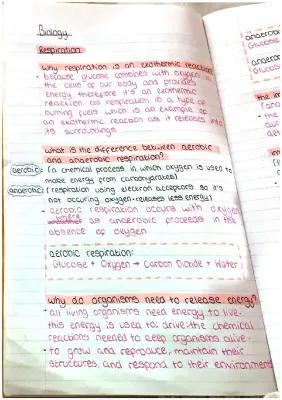 Biology
Respiration
why respiration is an exothermic reaction
because glucose combines with oxygen in
the cells of our body and provides
energy, therefore it's an exothermic
reaction as respiration is a type of
burning fuels which is an example of
an exothermic reaction as it releases into
its surroundings
what is the difference between aerobic
and anaerobic respiration?
aerobic: (a chemical process in which oxygen is used to
make energy from carbohydrates)
anaerobic: (respiration using electron acceptors so it's
not occuring oxygen-releases less energy)
- aerobic respiration occurs with oxygen
as anaerobic proceeds in the
absence of oxygen
aerobic respiration:
Glucose + Oxygen → Carbon Dioxide + Water
why do organisms need to release energy?
- all living organisms need energy to live.
this energy is used to: drive the chemical
reactions needed to keep organisms alive.
- to grow and reproduce, maintain their
structures, and respond to their environment
Glucose